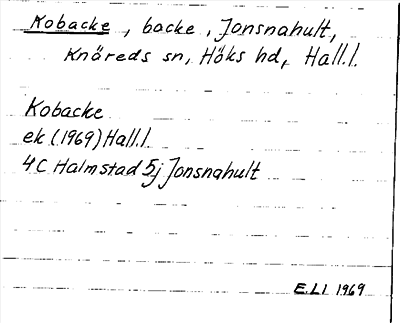 Kobacke, backe, Jonsnahult,
Knäreds sn, Höks hd, Hall.l.
Kobacke
ek (1969) Hall.l.
4C Halmstad 5j Jonsnahult
E.L1 1969